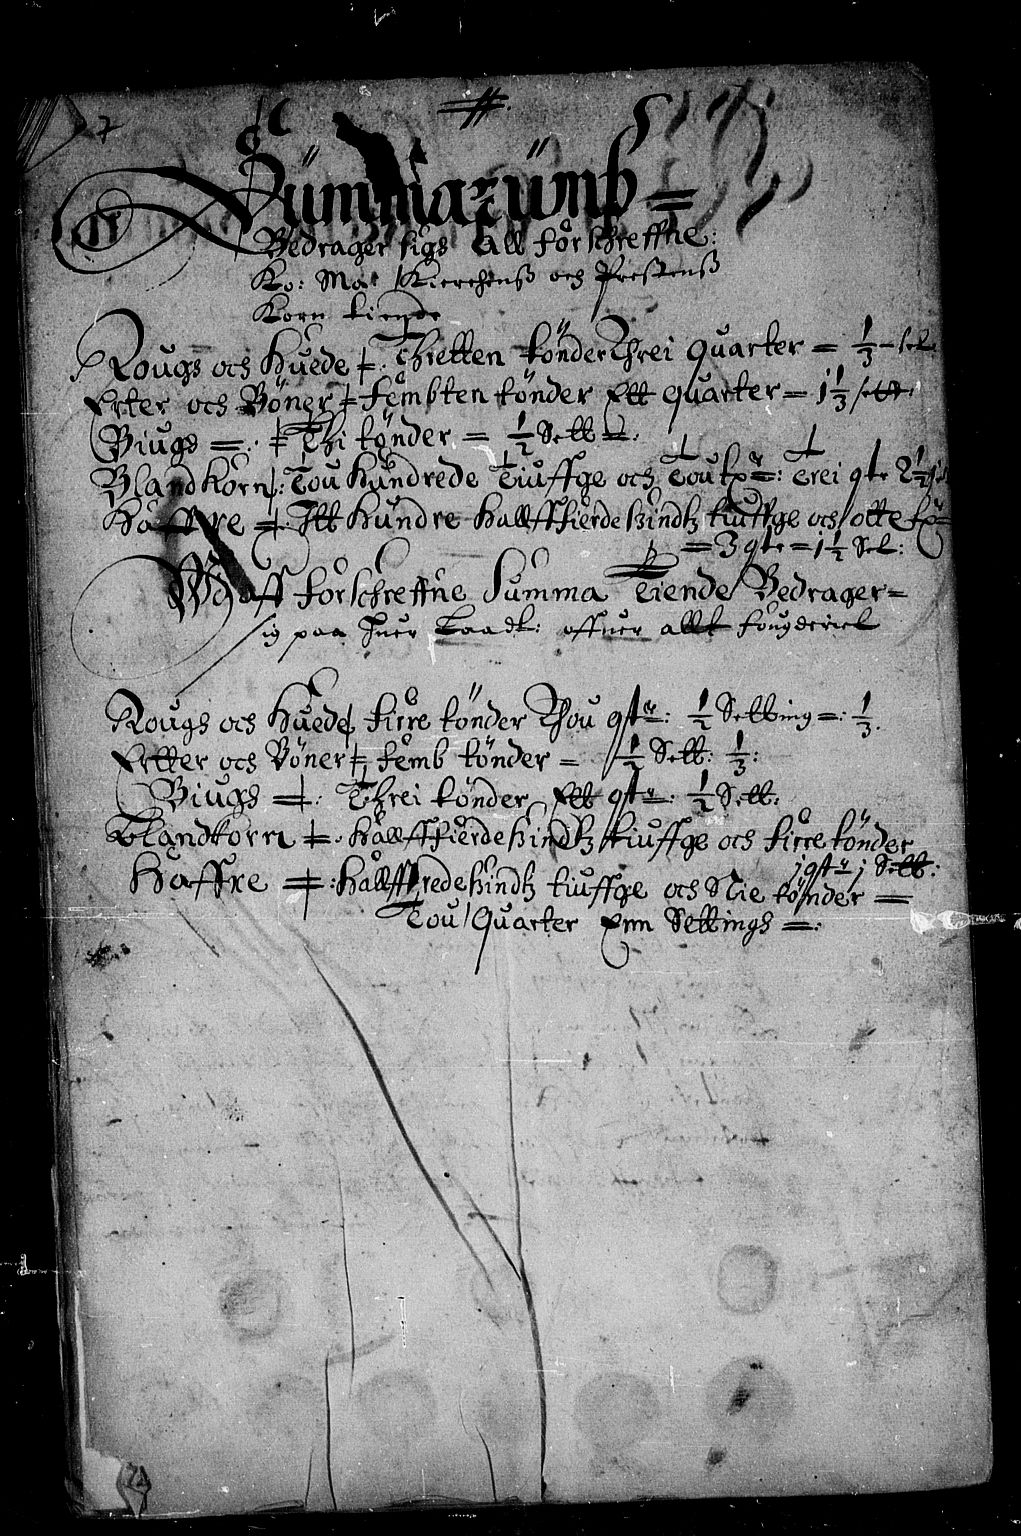 Summarumb =
Bedrager sigs All forschreffne:
Ko: Ma: Kierchens och Prestens
Korn tiende
Rougs och Huede Thretten tönder Threi quarter = 1/3 set
Erter och Böner fembten tönder Ett quarter = 1 1/3 sett
Biugs =: Thi tönder = 1/2 Sett =:
Blandkorn: Tou Hundrede Tiuffge och Tou tr: Trei qtr 2 1/2
Haffre Itt Hundre Hallfffierdesindtz tiuffge och otte
= 3 qtr = 1 1/2 Set:
Aff forschreffne Summa Tiende Bedrager =
ig paa Huer Laadt: offuer allt fougderiet
Rougs och Huede firre tönder Thou qtr: 1/2 Setting =: 1/3.
Ertter och Böner femb tönder = 1/2 Sett: 1/3:
Biugs =: Threi tönder Ett qtr: 1/2 Sett:
Blandkorn =: Hallfffierdesindtz tiuffge och firre tönder
j qtr j Sett:
Haffre =: Hallfffredesindtz tiuffge och Nie tönder =
Tou Quarter Enn Settings =: